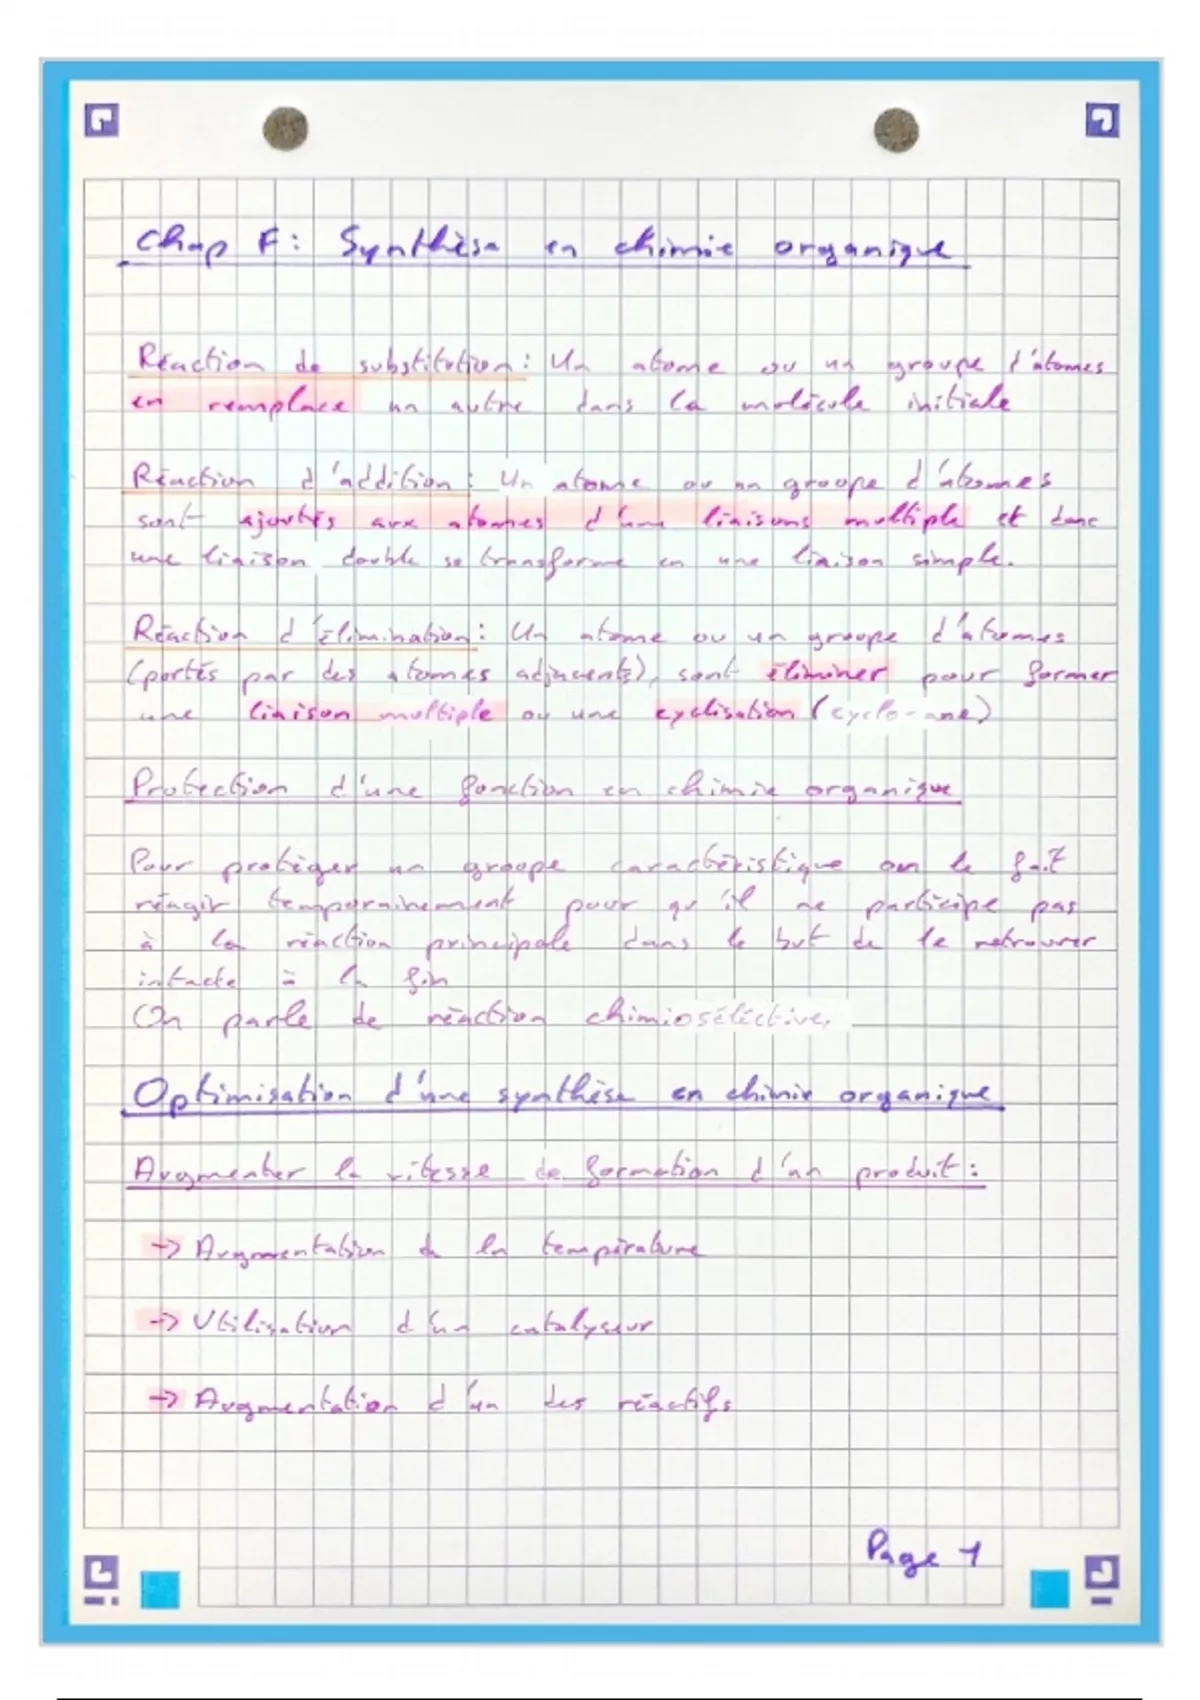 Chap F: Synthèse en chimie organique
Réaction de substitution: Un atome ou un groupe d'atomes
en remplace un autre dans la molécule initiale
Réaction d'addition: Un atome ou un groupe d'atomes
sont ajoutés aux atomes d'une liaisons multiple et donc
une liaison double se transforme en une liaison simple.
Réaction d'élimination: Un atome ou un groupe d'atomes
(portés par des atomes adjacents), sont éliminer pour former
une liaison multiple ou une cyclisation (cyclo-ane)
Protection d'une fonction en chimie organique
Pour protéger un groupe caractéristique on le fait
réagir temporairement pour qu'il ne participe pas
à la réaction principale dans le but de le retrouver
intacte à la fin
On parle de réaction chimiosélective.
Optimisation d'une synthèse en chimie organique
Augmenter la vitesse de formation d'un produit:
-> Augmentation de la température
-> Utilisation d'un catalyseur
-> Augmentation d'un des réactifs
Page 1